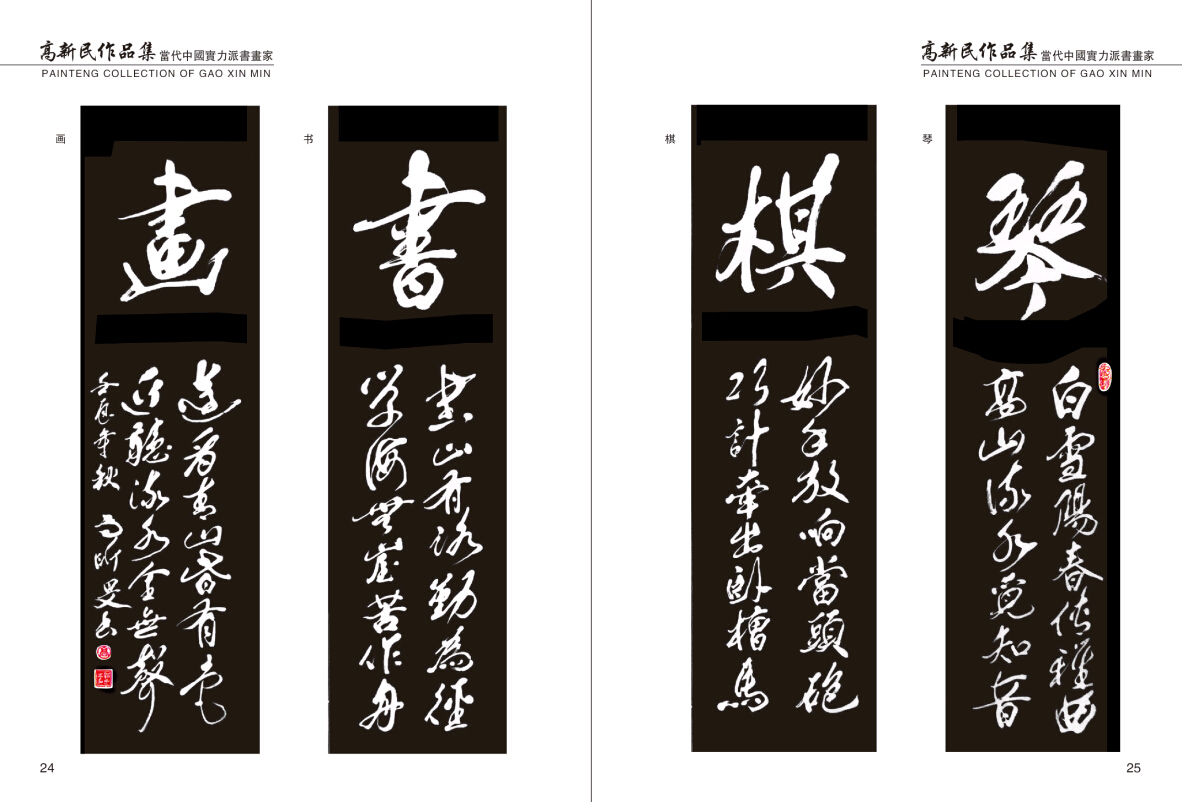 高新民作品集 當代中國實力派書畫家
PAINTENG COLLECTION OF GAO XIN MIN
画
畫
遠看青山皆有色
近聽流水全無聲
壬辰年秋
书
書
書山有路勤為徑
学海無崖苦作舟
24
高新民作品集 當代中國實力派書畫家
PAINTENG COLLECTION OF GAO XIN MIN
棋
棋
妙手放响當頭砲
巧計牽出卧槽馬
琴
琴
白雪陽春传雅曲
高山流水覓知音
25